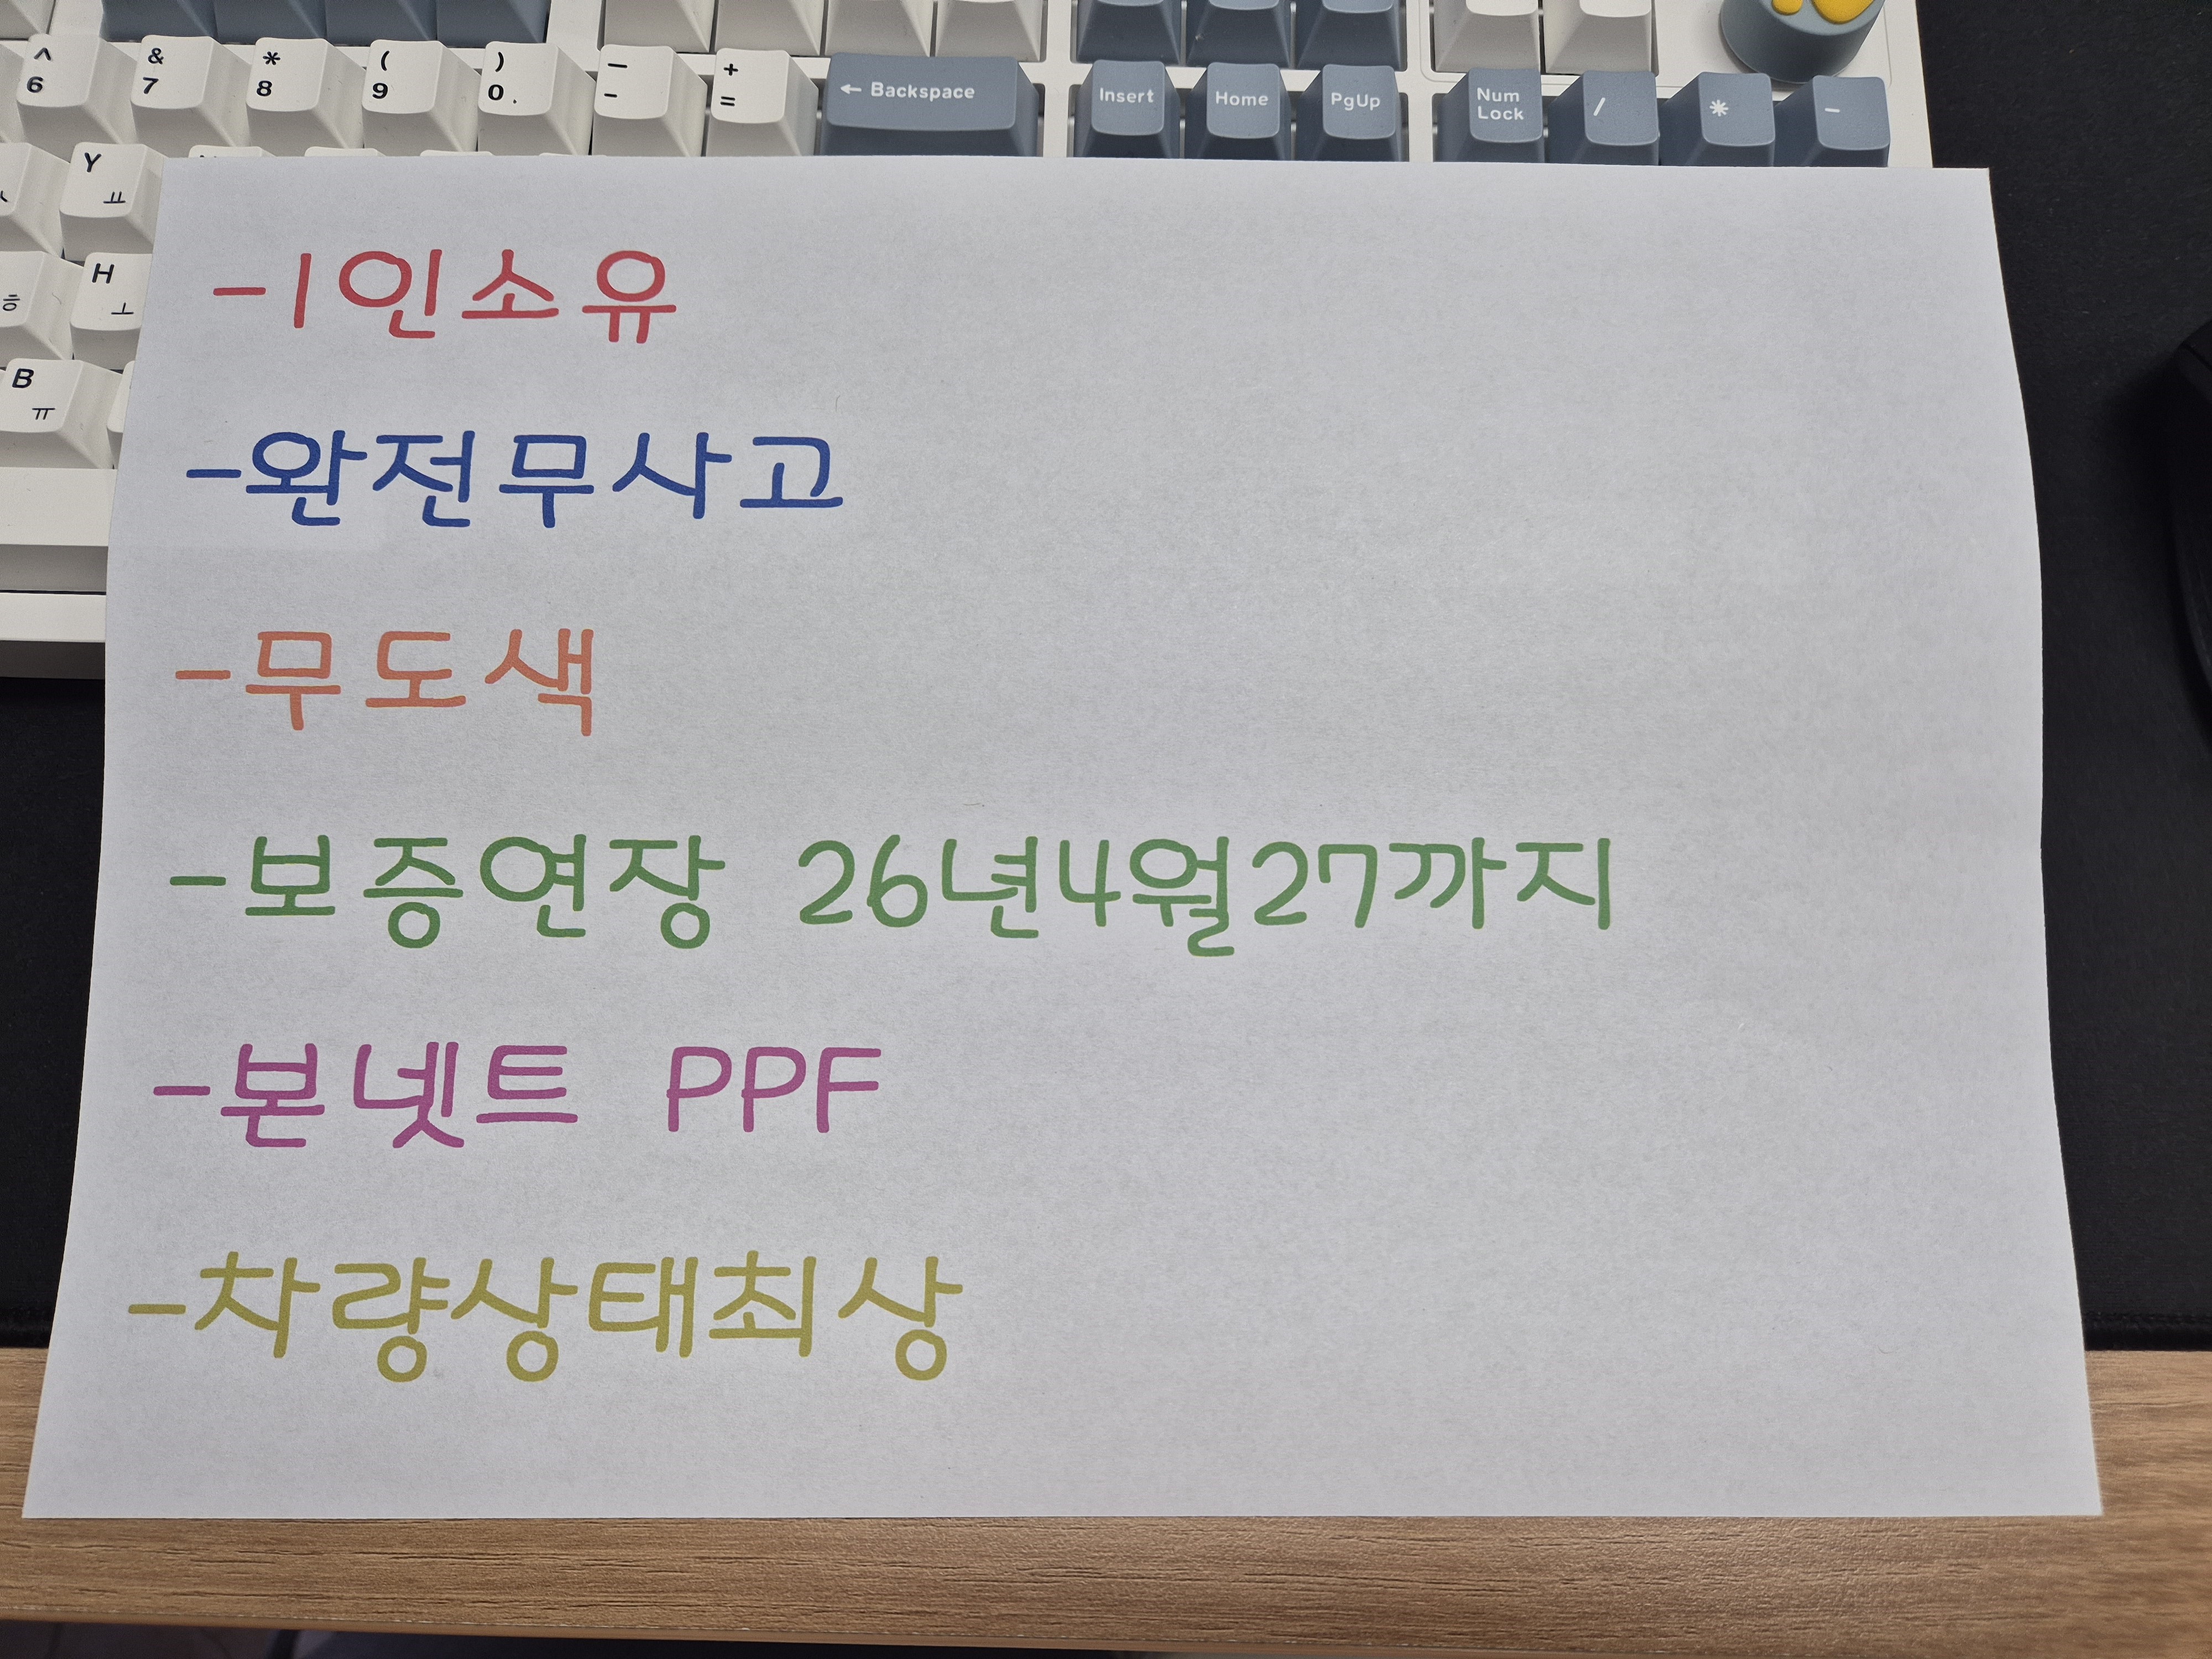 ^ 6 & 7 * 8 ( 9 ) 0 — - + = ← Backspace Insert Home PgUp Num Lock / * -
Y ㅛ
H ㅗ
ㅎ
B ㅠ
-1인소유
-완전무사고
-무도색
-보증연장 26년4월27까지
-본넷트 PPF
-차량상태최상